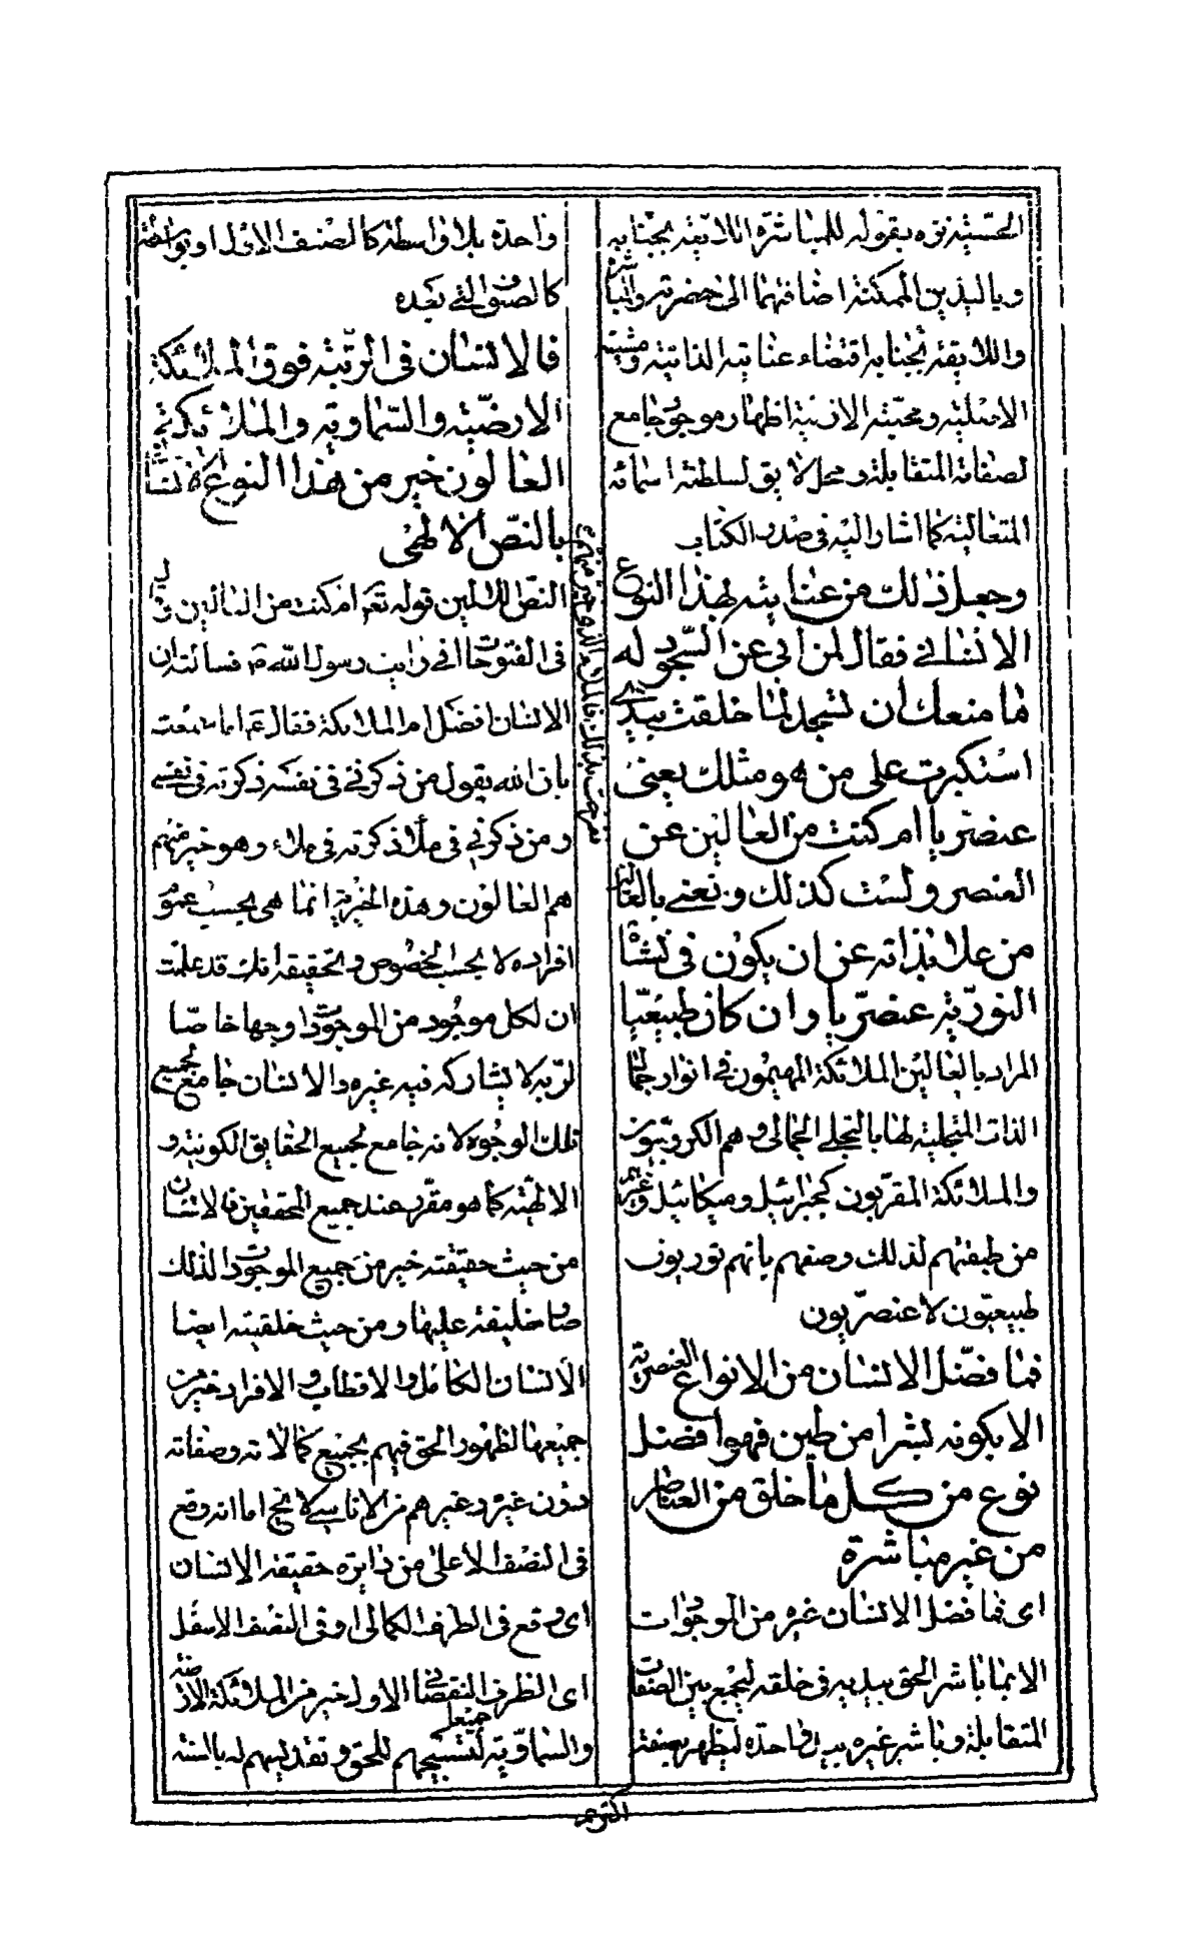 الحسّيّة نزه بقوله للمباشرة اللائقة بجنابه
وباليدين الممكنة اضافتهما الى حضرته والمباشرة
واللايقة بجنابه اقتضاء عنايته الذاتية ومشيته
الاصلية ومحبّته الازلية اظهار موجود جامع
لصفاته المتقابلة ومحل لايق لسلطنة اسمائه
المتعالية كما اشار اليه فى صدر الكتاب
وجعل ذلك من عنايته بهذا النوع
الانسانى فقال لمن ابى عن السّجود له
ما منعك ان تسجد لما خلقت بيدىّ
استكبرت على من هو مثلك يعنى
عنصريا ام كنت من العالين عن
العنصر ولست كذلك ونعنى بالعالين
من علا بذاته عن ان يكون فى نشأته
النوريّة عنصريّا وان كان طبيعيّا
المراد بالعالين الملائكة المهيمون فى انوار جمال
الذات المتجلية لها بالتجلى الجمالى وهم الكروبيون
والملائكة المقربون كجبرائيل وميكائيل وغيرهم
من طبقتهم لذلك وصفهم بانهم نوريون
طبيعيّون لا عنصريّون
فما فضّل الانسان من الانواع العنصرية
الا بكونه بشرا من طين فهو افضل
نوع من كل ما خلق من العناصر
من غير مباشرة
اى فما فضل الانسان غيره من الموجودات
الا بما باشر الحق بيديه فى خلقه ليجمع بين الصفات
المتقابلة وباشر غيره بيد واحدة ليظهر بصفة
واحدة بلا واسطة كالصنف الاول او بواسطة
كالصنوف التى بعده
فالانسان فى الرّتبة فوق الملائكة
الارضيّة والسّماوية والملائكة
العالون خير من هذا النوع الانسانى
بالنصّ الالهى
النصّ الالهى قوله تعم ام كنت من العالين
فى الفتوحات انى رايت رسول الله ص فسألته ان
الانسان افضل ام الملائكة فقال عم اما سمعت
بان الله يقول من ذكرنى فى نفسه ذكرته فى نفسى
ومن ذكرنى فى ملأ ذكرته فى ملاء وهو خير منهم
هم العالون وهذه الخيرية انما هى بحسب عموم
افراده لا بحسب الخصوص وتحقيقه انك قد علمت
ان لكل موجود من الموجودات وجها خاصّا
لربه لا يشاركه فيه غيره والانسان جامع لجميع
تلك الوجوه لانه جامع لجميع الحقايق الكونية و
الالهيّة كما هو مقرر عند جميع المحققين فالانسان
من حيث حقيقته خير من جميع الموجودات لذلك
صار خليفة عليها ومن حيث خلقيته ايضا
الانسان الكامل والاقطاب والافراد خير من
جميعها لظهور الحق فيهم بجميع كمالاته وصفاته
دون غيره وغيرهم من الاناسى لا يخ اما انه وقع
فى النصف الاعلى من دايرة حقيقة الانسان
اى وقع فى الطرف الكمالى او فى النصف الاسفل
اى الطرف النقصانى الاول خير من الملائكة الارضية
والسماوية جميعا لتسبيحهم للحق وتقديسهم له بالسنة